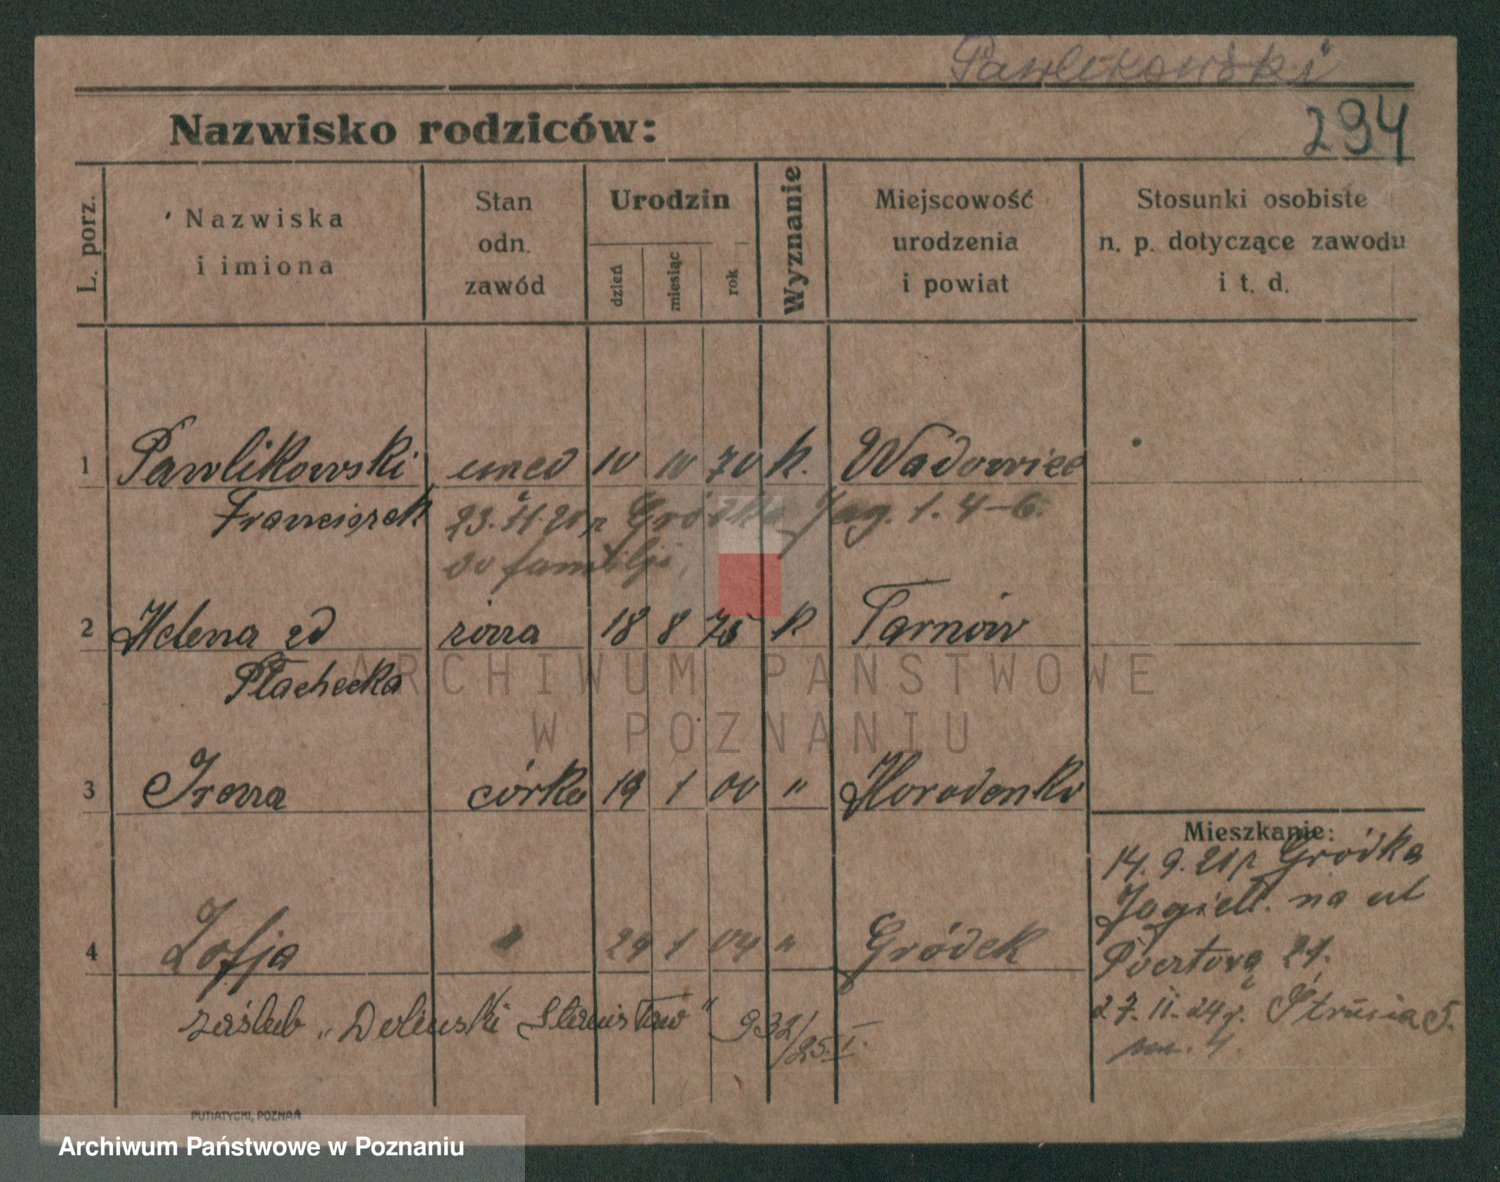 Pawlikowski
Nazwisko rodziców:
294
L. porz.
Nazwiska i imiona
Stan odn. zawód
Urodzin
dzień
miesiąc
rok
Wyznanie
Miejscowość urodzenia i powiat
Stosunki osobiste n. p. dotyczące zawodu i t. d.
1 Pawlikowski umed 10 10 70 k. Wadowice
Franciszek 23. 4. 20 z Gródka Jag. 1. 4-6.
do familji
2 Helena zd żona 18 8 75 k Tarnów
Płachecka
ARCHIWUM PAŃSTWOWE
W POZNANIU
3 Irena córka 19 1 00 " Horodenka
Mieszkanie:
14. 9. 21 z Gródka
Jagiell. na ul
4 Zofja " 29 1 04 " Gródek
Pocztową 21.
zaślub "Doliński Stanisław" 932/25.I.
27. II. 24 r. Strusia 5.
m. 4.
PUTIATYCKI, POZNAŃ
Archiwum Państwowe w Poznaniu